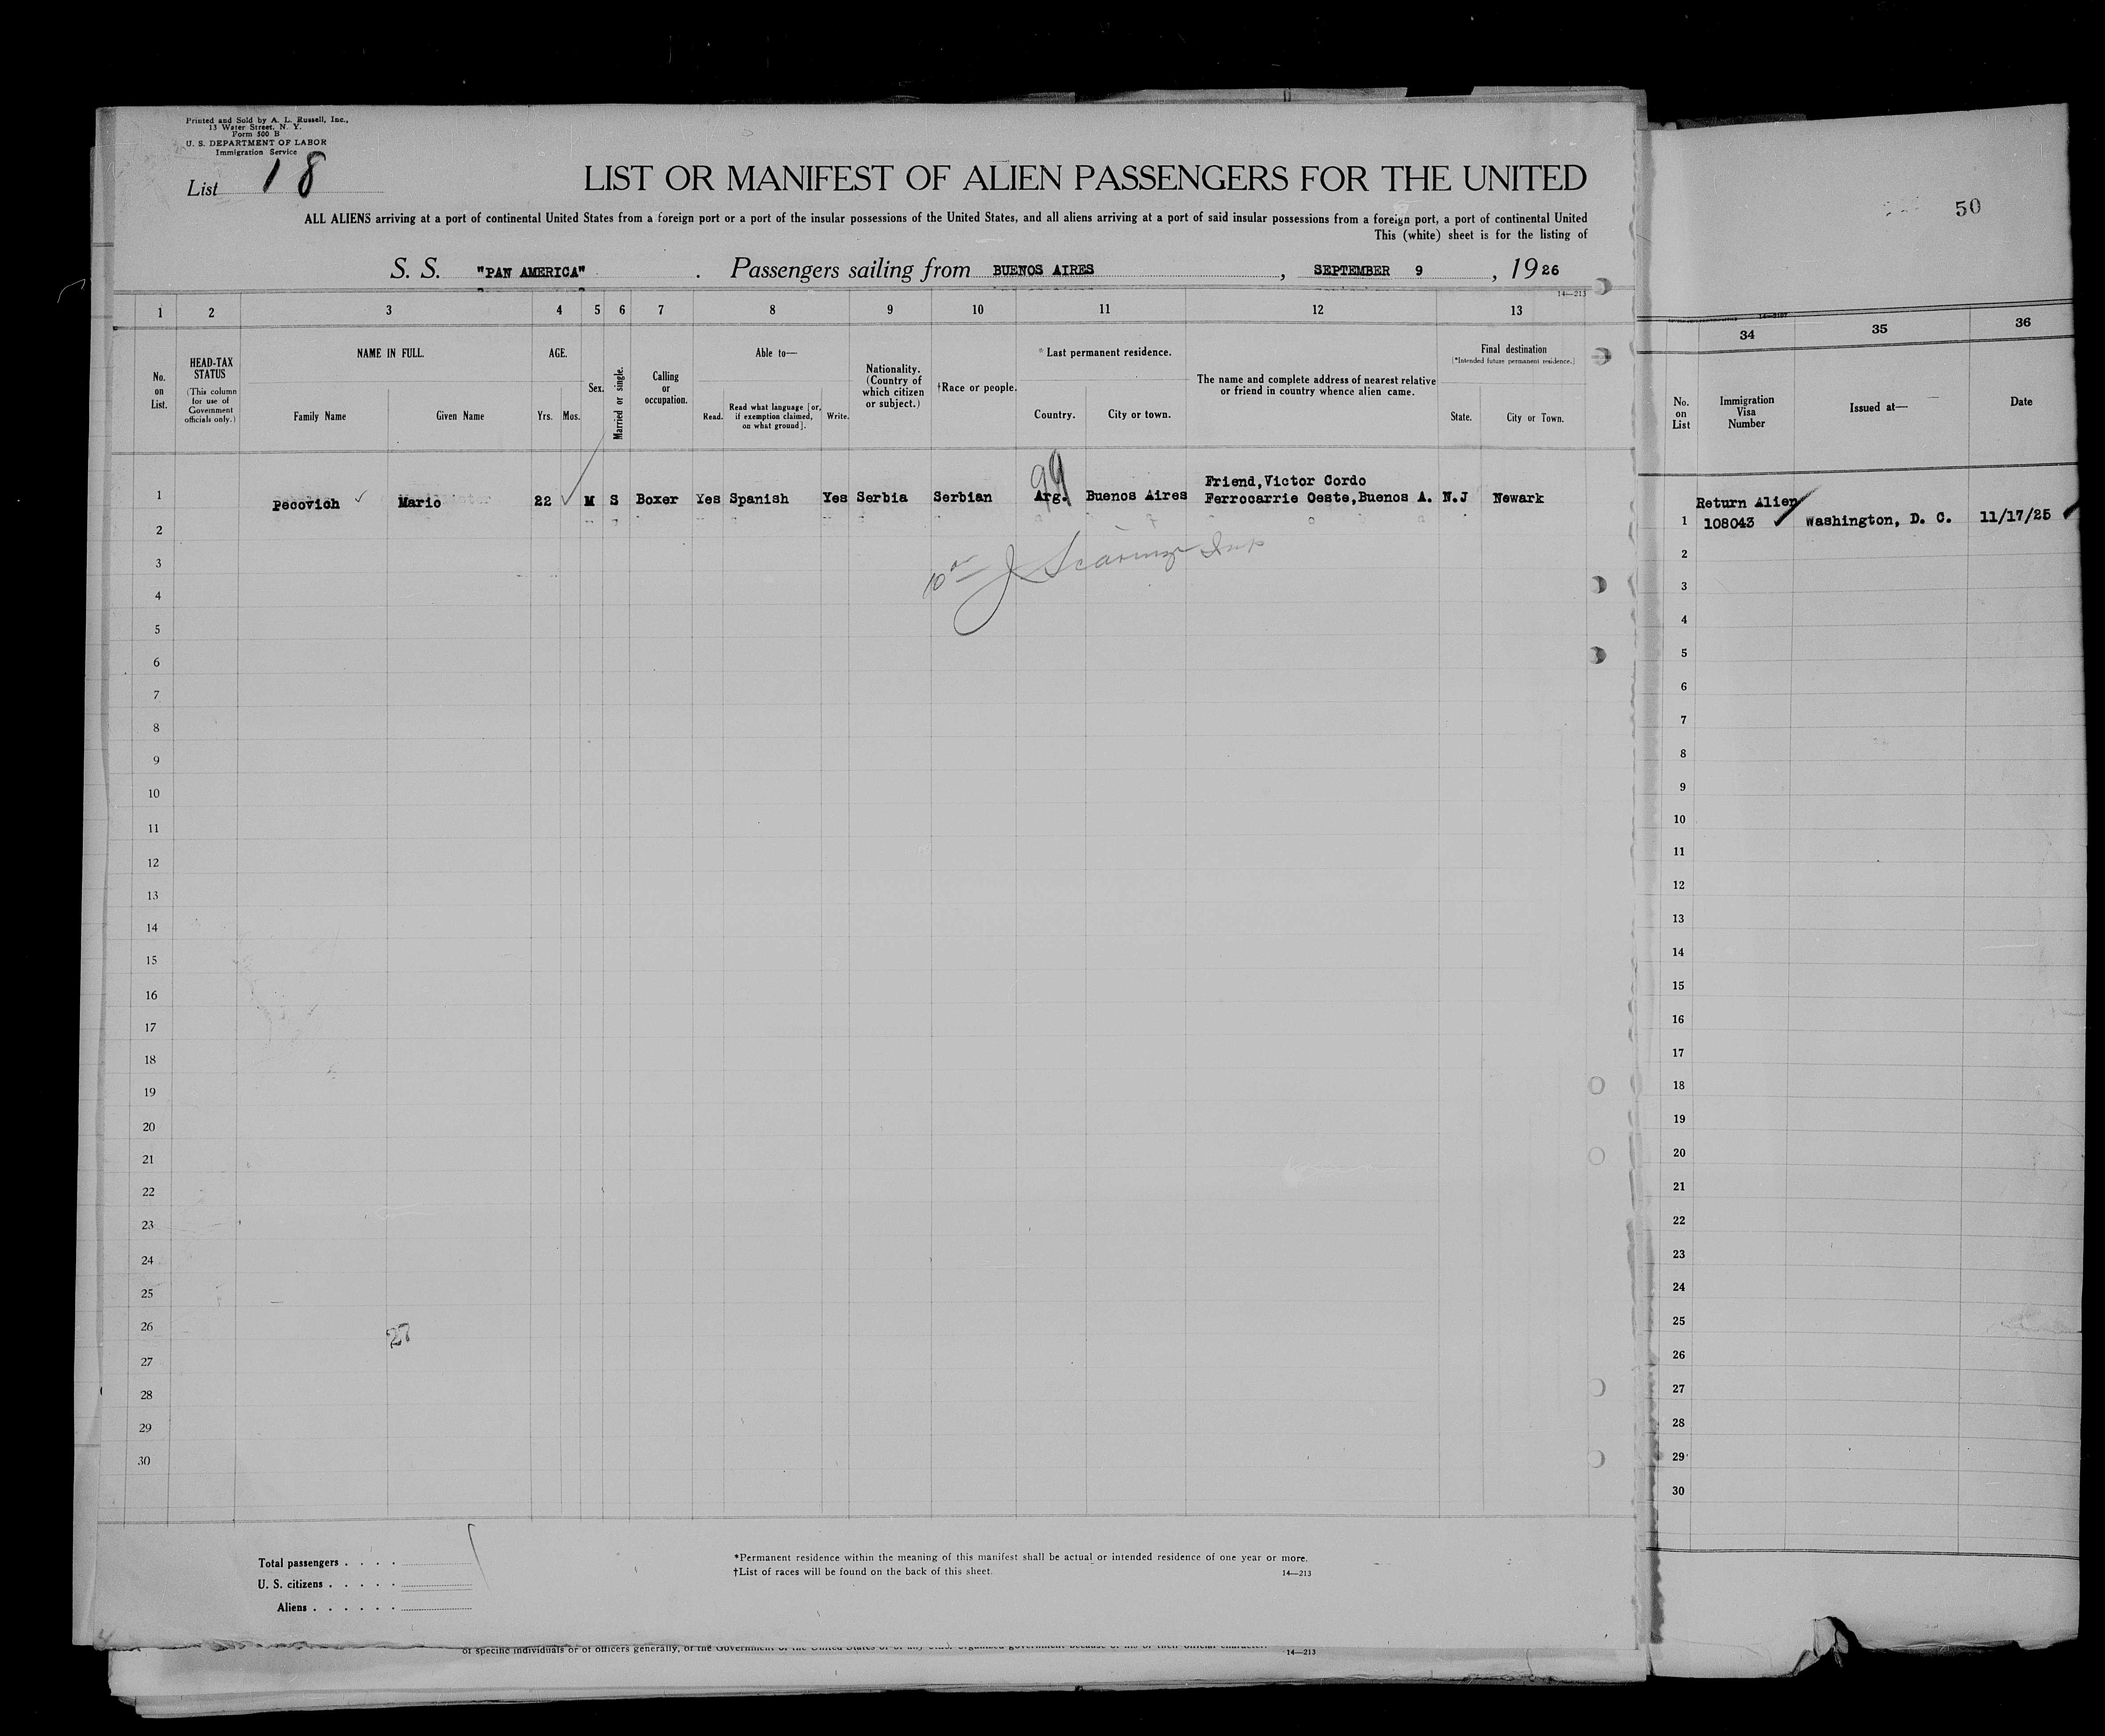 Printed and Sold by A. L. Russell, Inc.,
13 Water Street, N. Y.
Form 500 B
U. S. DEPARTMENT OF LABOR
Immigration Service
List 18
LIST OR MANIFEST OF ALIEN PASSENGERS FOR THE UNITED
ALL ALIENS arriving at a port of continental United States from a foreign port or a port of the insular possessions of the United States, and all aliens arriving at a port of said insular possessions from a foreign port, a port of continental United
This (white) sheet is for the listing of
50
S. S. "PAN AMERICA" . Passengers sailing from BUENOS AIRES , SEPTEMBER 9 , 1926
14—213
1 2 3 4 5 6 7 8 9 10 11 12 13
34 35 36
No. on List.
HEAD-TAX STATUS (This column for use of Government officials only.)
NAME IN FULL.
Family Name Given Name
AGE.
Yrs. Mos.
Sex.
Married or single.
Calling or occupation.
Able to—
Read. Read what language [or, if exemption claimed, on what ground]. Write.
Nationality. (Country of which citizen or subject.)
†Race or people.
* Last permanent residence.
Country. City or town.
The name and complete address of nearest relative or friend in country whence alien came.
Final destination
(*Intended future permanent residence.)
State. City or Town.
No. on List
Immigration Visa Number
Issued at—
Date
99
Friend,Victor Cordo
1 Pecovich ✓ Mario 22 ✓ M S Boxer Yes Spanish Yes Serbia Serbian Arg. Buenos Aires Ferrocarrie Oeste,Buenos A. N.J Newark
Return Alien
1 108043 ✓ Washington, D. C. 11/17/25
2
3
4
5
6
7
8
9
10
11
12
13
14
15
16
17
18
19
20
21
22
23
24
25
26
27
27
28
29
30
2
3
4
5
6
7
8
9
10
11
12
13
14
15
16
17
18
19
20
21
22
23
24
25
26
27
28
29
30
Total passengers . . . .
U. S. citizens . . . . .
Aliens . . . . . .
*Permanent residence within the meaning of this manifest shall be actual or intended residence of one year or more.
†List of races will be found on the back of this sheet.
14—213
of specific individuals or of officers generally, of the Government of the United States or of any
14—213